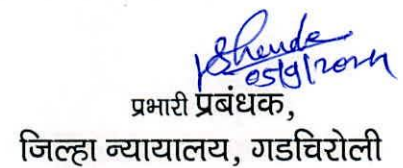 Shende
05/9/2024
प्रभारी प्रबंधक,
जिल्हा न्यायालय, गडचिरोली